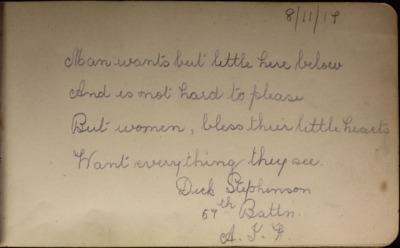 8/11/17
Man wants but little here below
And is not hard to please
But women, bless their little hearts
Want everything they see.
Dick Stephenson
57th Battn.
A. I. F